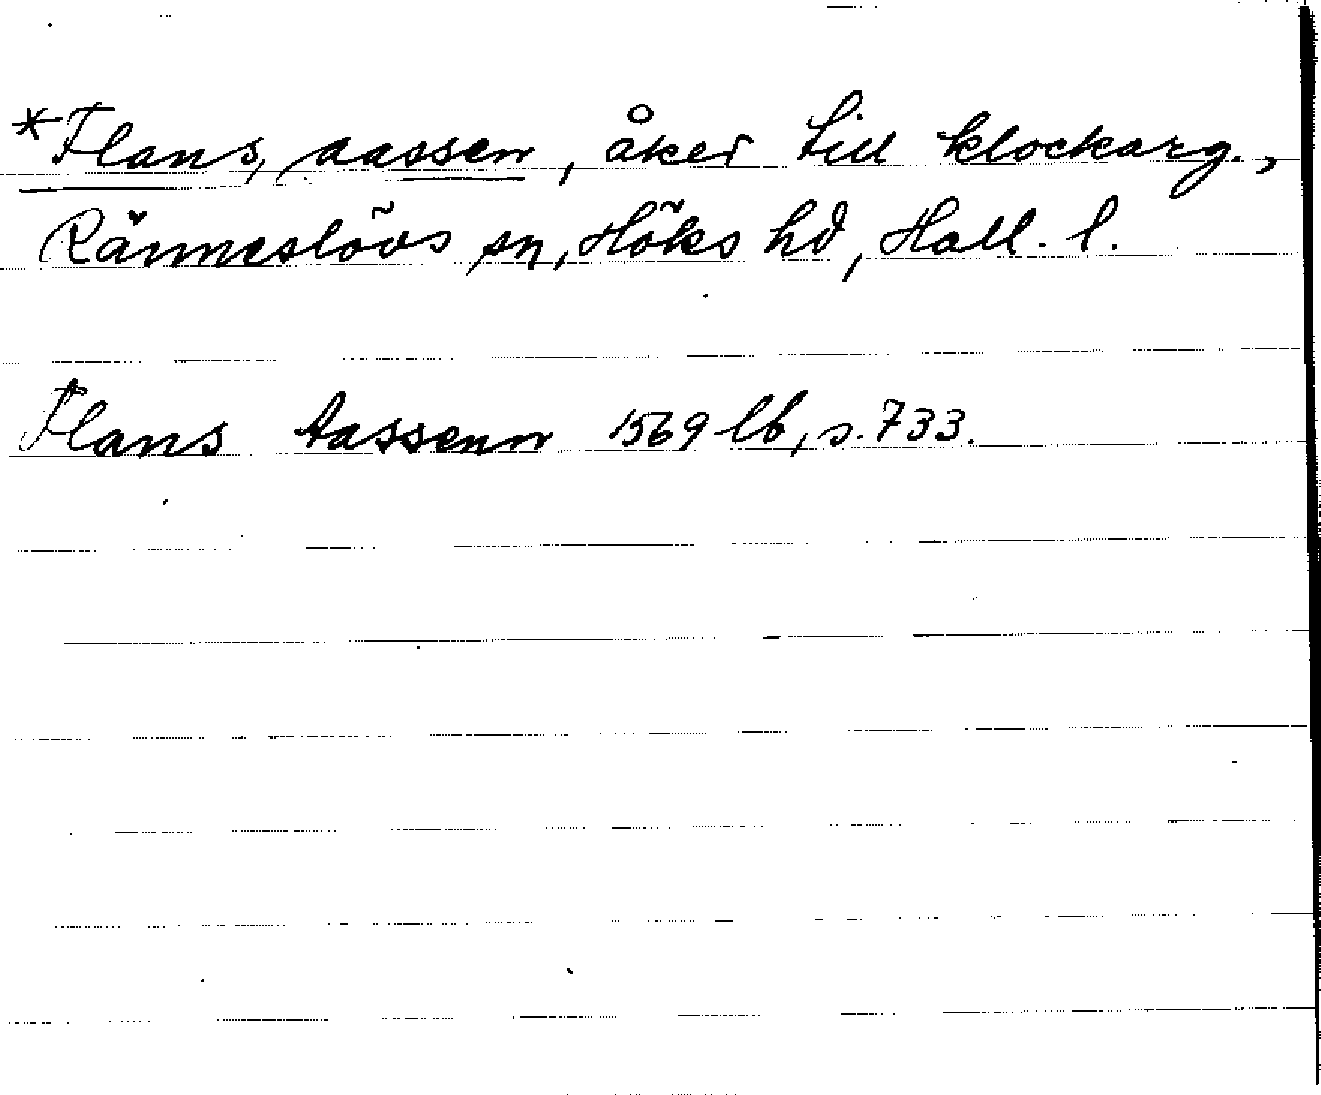 *Flans, aassen, åker till klockarg.,
Ränneslövs sn, Höks hd, Hall. l.
Flans Aassenn 1569 lb, s. 733.